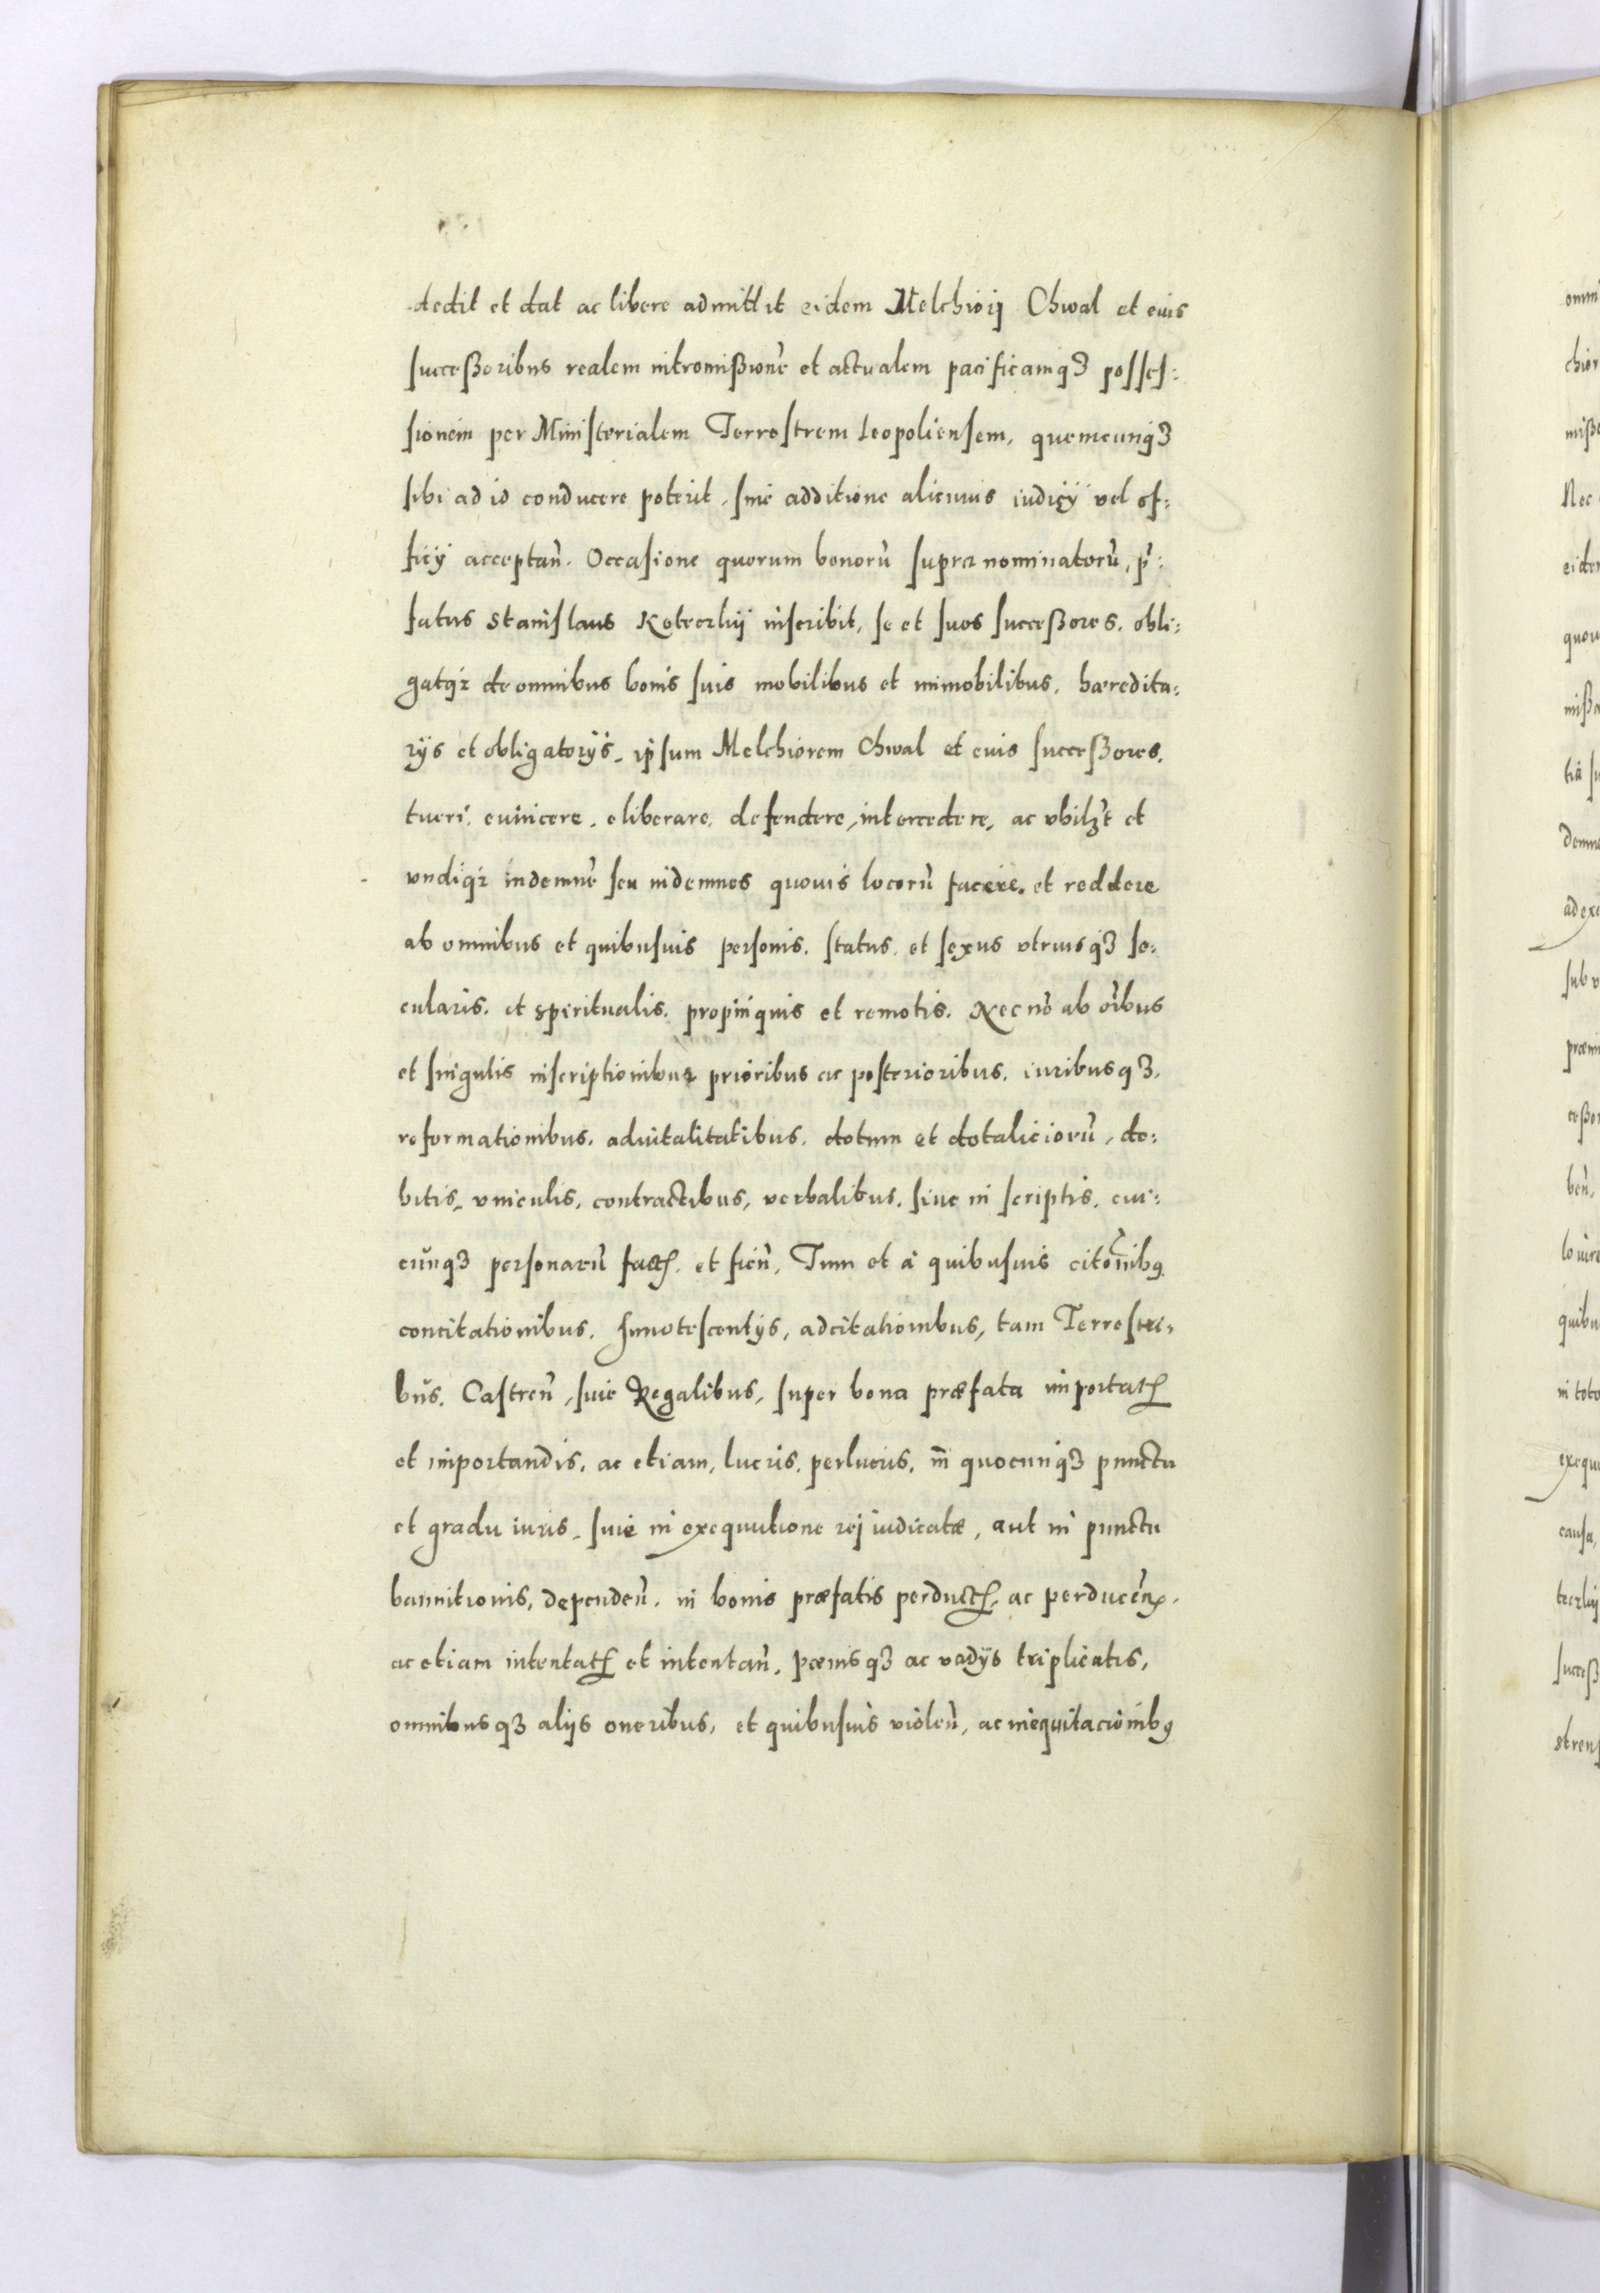 dedit et dat ac libere admittit eidem Melchiorj Chwal et eius
succeßoribus realem intromißionē et actualem pacificamqꝫ posses:
sionem per Ministerialem Terrestrem Leopoliensem, quemcunqꝫ
sibi ad id conducere poterit, sine additione alicuius iudicÿ vel of:
ficÿ acceptan̄. Occasione quorum bonorū supra nominatorū, p̄:
fatus Stanislaus Koteczkij inscribit, se et suos succeßores. obli:
gatqꝫ de omnibus bonis suis mobilibus et immobilibus, hæredita:
rÿs et obligatorÿs, ipsum Melchiorem Chwal et eius succeßores,
tueri, euincere, eliberare, defendere, intercedere, ac vbilꝫt et
vndiqꝫ indemnē seu indemnes quouis locorū facere, et reddere
ab omnibus et quibusuis personis, status, et sexus vtriusqꝫ se:
cularis, et speritualis, propinquis et remotis. Nec nō ab oībus
et singulis inscriptionibus prioribus ac posterioribus, iuribusqꝫ,
reformationibus, aduitalitatibus, dotum et dotaliciorū, de:
bitis, vinculis, contractibus, verbalibus, siue in scriptis, cui:
cūnqꝫ personarū fact, et fien̄, Tum et à quibusuis citōnibꝰ
concitationibus, Innotescentÿs, adcitationibus, tam Terrestri:
bus, Castren̄, siue Regalibus, super bona præfata importat
et importandis, ac etiam, lucris, perlucris, in quocunqꝫ punctu
et gradu iuris, siue in exequutione rej iudicatæ, aut in punctu
bannitionis, dependen̄, in bonis præfatis perduct, ac perducen̄,
ac etiam intentat et intentan̄, pænisqꝫ ac vadÿs triplicatis,
omnibusqꝫ alijs oneribus, et quibusuis violen̄, ac inequitacionibꝰ